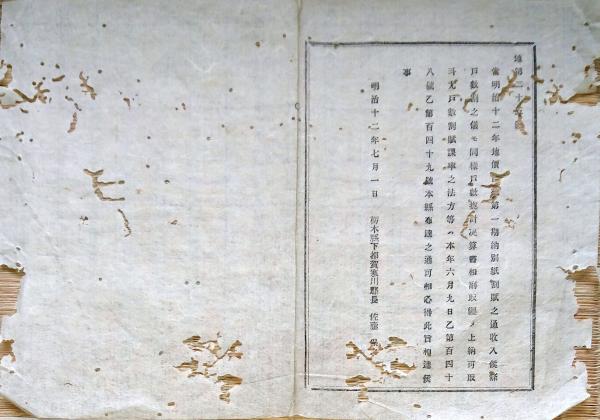 地第二十
當明治十二年地價 第一期納別紙割賦之通收入候條
戸數割之儀モ同樣戸數 決算書相 取纏メ上納可取
計尤戸數割賦課率之法方等ハ本年六月九日乙第百四十
八號乙第百四十九號本縣布達之通可相心得此旨相達候
事
明治十二年七月一日
栃木縣下都賀寒川郡長 佐